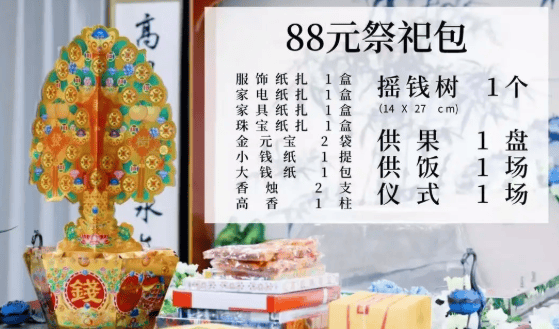 88元祭祀包
服饰纸扎 1盒
家电纸扎 1盒
家具纸扎 1盒
珠宝纸扎 1盒
金元宝 2袋
小钱纸 1提
大钱纸 1包
香烛 2支
高香 1柱
摇钱树 1个
(14 X 27 cm)
供果 1盘
供饭 1场
仪式 1场
高
水
錢